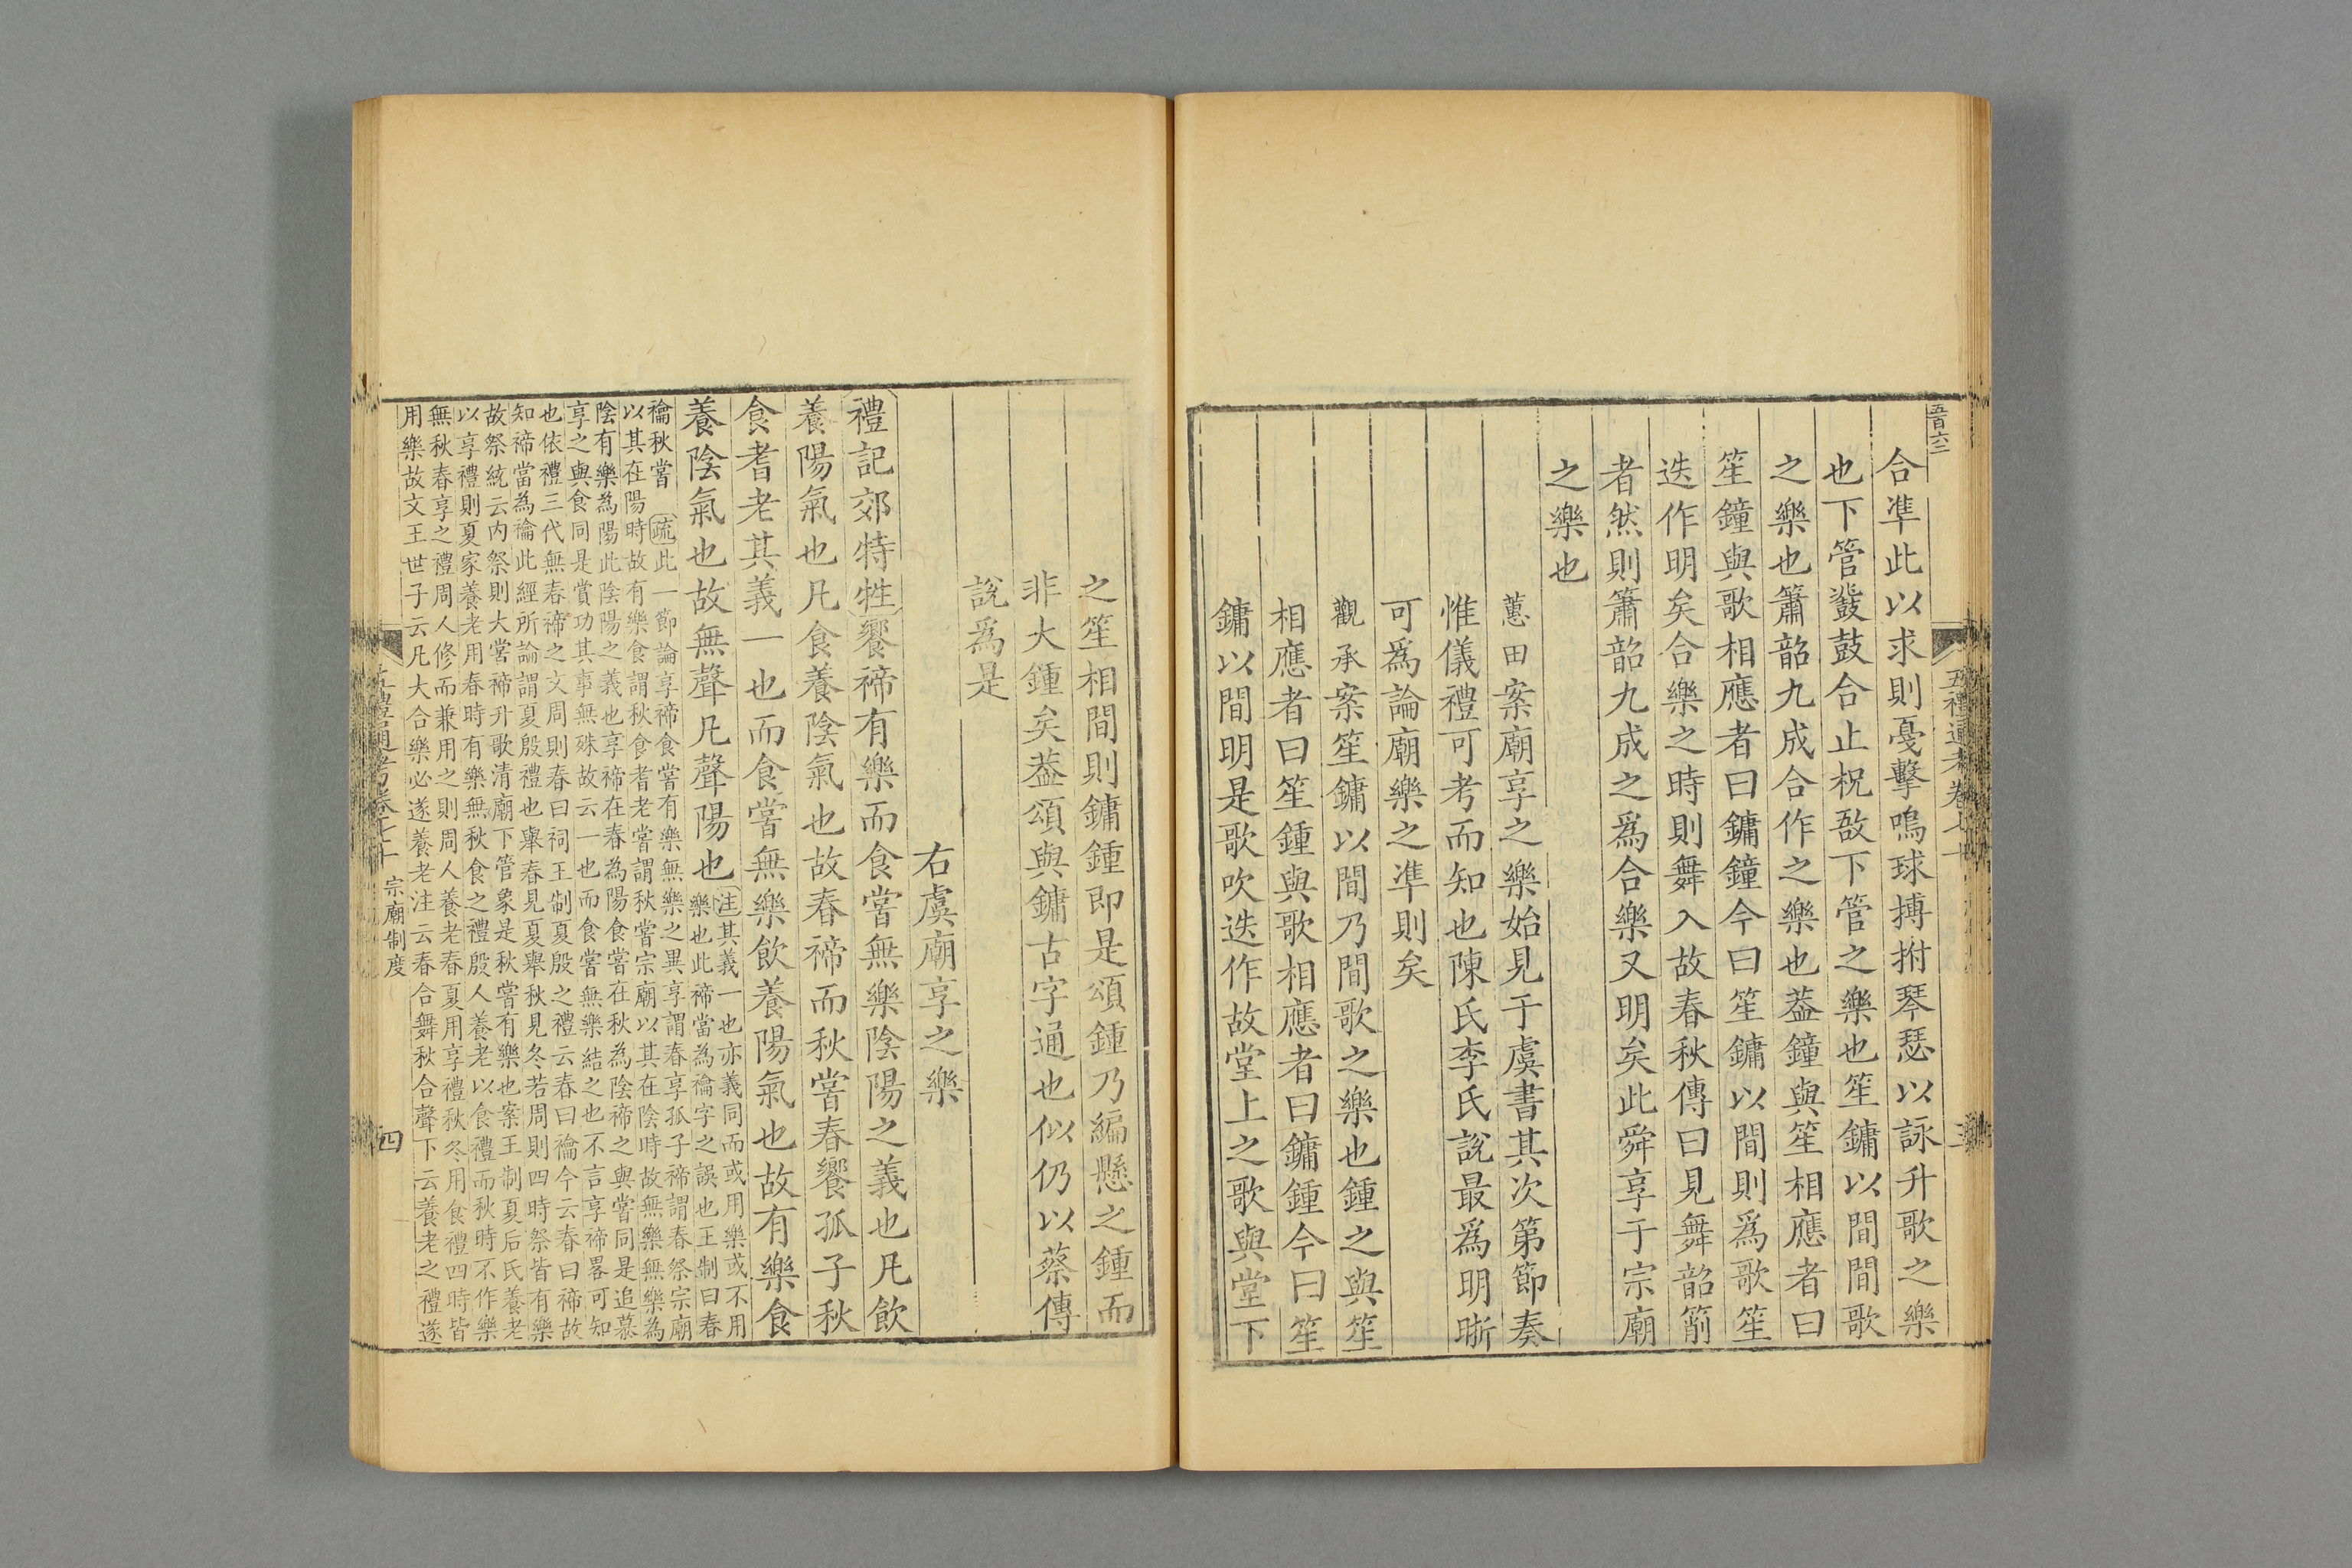 五百六二
合準此以求則戞擊鳴球搏拊琴瑟以詠升歌之樂
也下管鼗鼓合止柷敔下管之樂也笙鏞以間間歌
之樂也簫韶九成合作之樂也葢鐘與笙相應者曰
笙鐘與歌相應者曰鏞鐘今曰笙鏞以間則爲歌笙
迭作明矣合樂之時則舞入故春秋傳曰見舞韶箾
者然則簫韶九成之爲合樂又明矣此舜享于宗廟
之樂也
蕙田案廟享之樂始見于虞書其次第節奏
惟儀禮可考而知也陳氏李氏說最爲明晰
可爲論廟樂之準則矣
觀承案笙鏞以間乃間歌之樂也鍾之與笙
相應者曰笙鍾與歌相應者曰鏞鍾今曰笙
鏞以間明是歌吹迭作故堂上之歌與堂下
之笙相間則鏞鍾即是頌鍾乃編懸之鍾而
非大鍾矣葢頌與鏞古字通也似仍以蔡傳
說爲是
右虞廟享之樂
禮記郊特牲饗禘有樂而食嘗無樂陰陽之義也凡飲
養陽氣也凡食養陰氣也故春禘而秋嘗春饗孤子秋
食耆老其義一也而食嘗無樂飲養陽氣也故有樂食
養陰氣也故無聲凡聲陽也
注其義一也亦義同而或用樂或不用
樂也此禘當為禴字之誤也王制曰春
禴秋嘗 疏此一節論享禘食嘗有樂無樂之異享謂春享孤子禘謂春祭宗廟
以其在陽時故有樂食謂秋食耆老嘗謂秋嘗宗廟以其在陰時故無樂無樂為
陰有樂為陽此陰陽之義也享禘在春為陽食嘗在秋為陰禘之與嘗同是追慕
享之與食同是賞功其事無殊故云一也而食嘗無樂結之也不言享禘畧可知
也依禮三代無春禘之文周則春曰祠王制夏殷之禮云春曰禴今云春曰禘故
知禘當為禴此經所論謂夏殷禮也舉春見夏舉秋見冬若周則四時祭皆有樂
故祭統云内祭則大嘗禘升歌清廟下管象是秋嘗有樂也案王制夏后氏養老
以享禮則夏家養老用春時有樂無秋食之禮殷人養老以食禮而秋時不作樂
無秋春享之禮周人修而兼用之則周人養老春夏用享禮秋冬用食禮四時皆
用樂故文王世子云凡大合樂必遂養老注云春合舞秋合聲下云養老之禮遂
五禮通考卷七十 宗廟制度
四